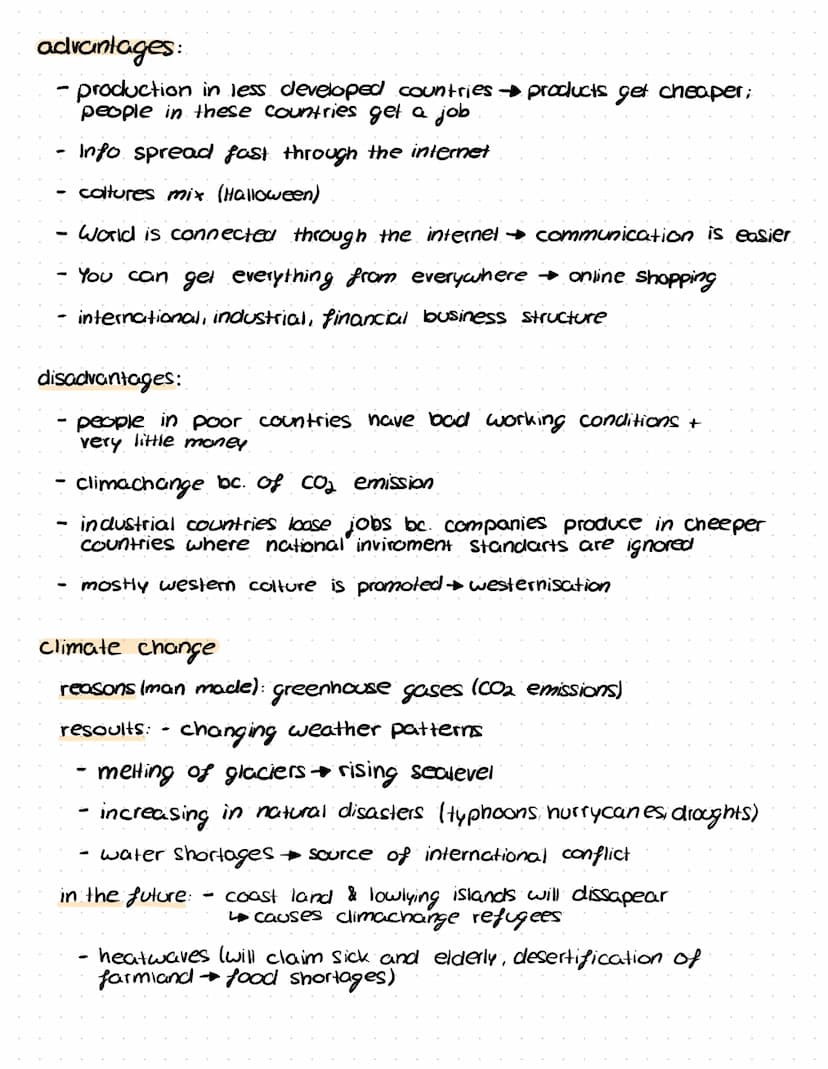 advantages:
- production in less developed countries → products get cheaper;
people in these countries get a job
- Info spread fast through the internet
- coltures mix (Halloween)
- World is connected through the internet → communication is easier
- You can get everything from everywhere → online shopping
- international, industrial, financial business structure
disadvantages:
- people in poor countries have bad working conditions +
very little money
- climachange bc. of CO₂ emission
- industrial countries loose jobs bc. companies produce in cheeper
countries where national inviroment standarts are ignored
- mostly western colture is promoted → westernisation
climate change
reasons (man made): greenhouse gases (CO₂ emissions)
resoults: - changing weather patterns
- melting of glaciers → rising sealevel
- increasing in natural disasters (typhoons, hurrycanes, droughts)
- water shortages → source of international conflict
in the future: - coast land & lowlying islands will dissapear
↳ causes climachange refugees
- heatwaves (will claim sick and elderly, desertification of
farmland → food shortages)